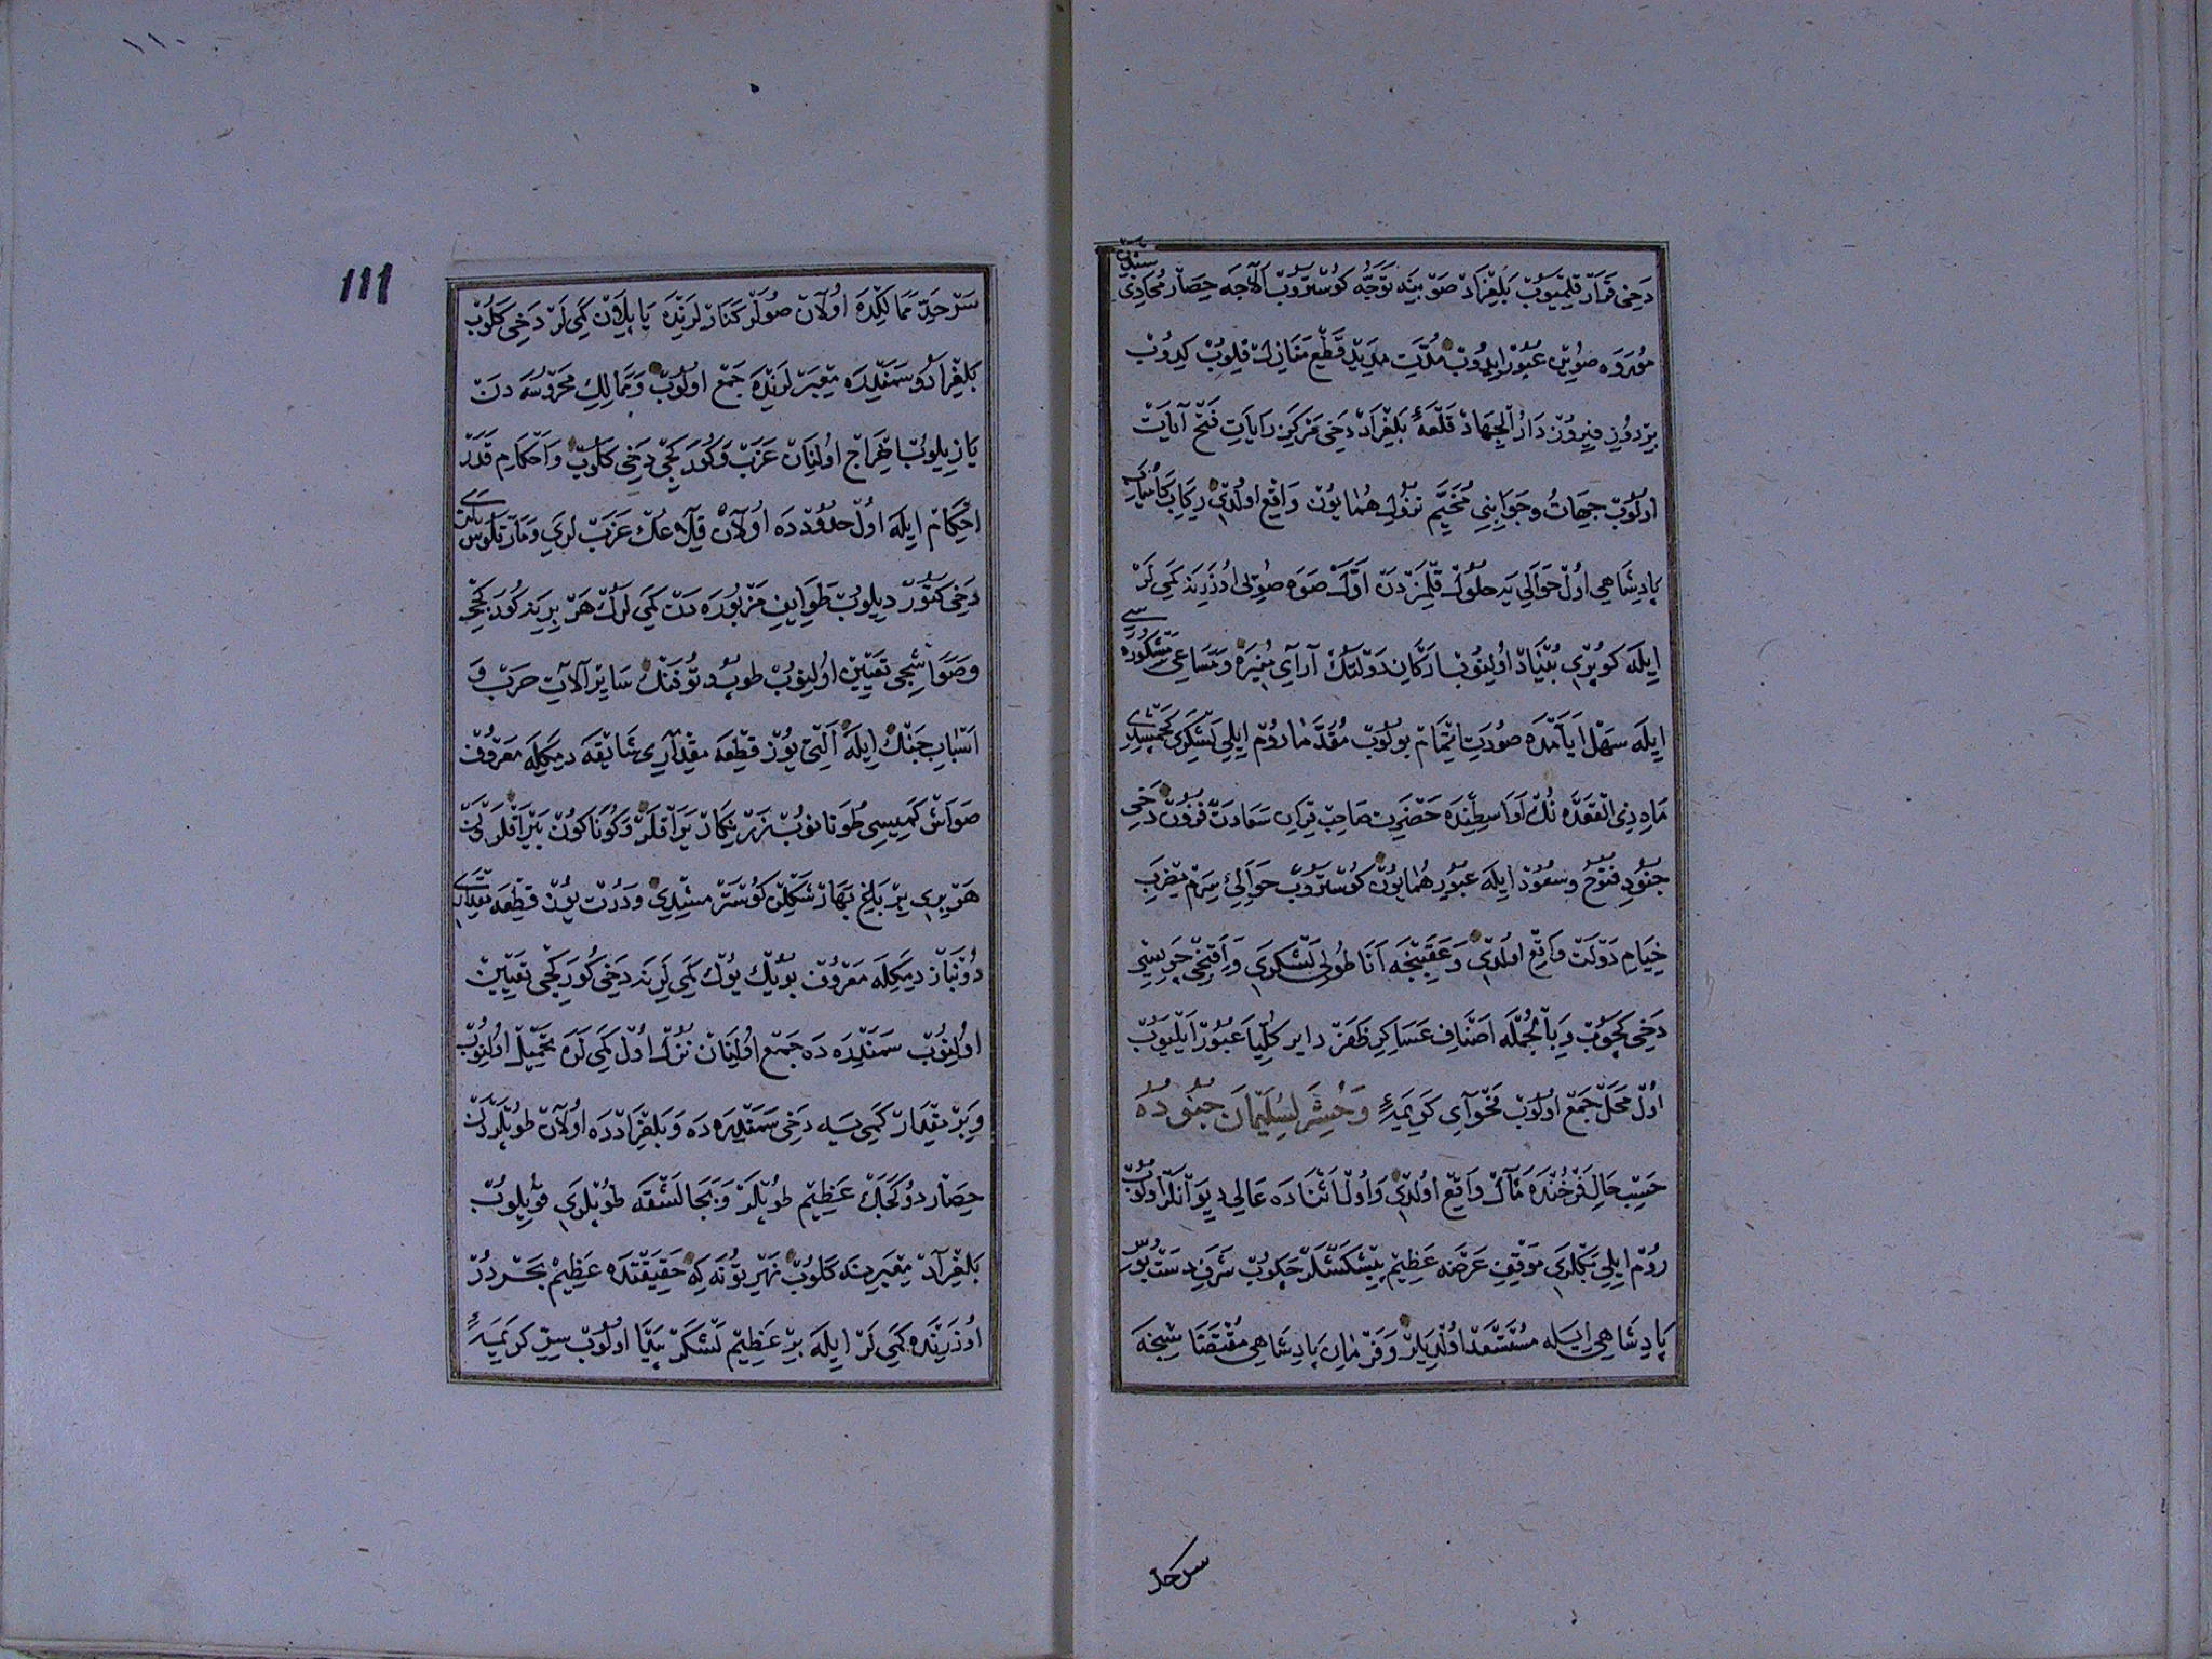 دَخِی قَرَارْ قِلْمَیُوبْ بَلِغْرَادْ صَوْبِینَه تَوَجُّه کُوسْتَرُوبْ آلَاجَه حِصَار مُحَاذِی سِنْدَنْ
مُورَوَه صُویِنْ عُبُورْ ایدُوبْ مُدَّتِ مَدِیدْ قَطْعِ مَنَازِلْ قِلُوبْ کِیدُوبْ
بِرْ دُونِ فِیرُوزْ دَارُ الْجِهَادْ قَلْعَهٔ بَلِغْرَادْ دَخِی مَرْکَزِ رَایَاتِ فَتْحْ آیَاتْ
اولُوبْ جِهَاتُ و جَوَانِبِی مُخَیَّمِ نُزُولِ هُمَایُونْ وَاقِعْ اولْدِی رِکَابِ کَامْیَابِ
پَادِشَاهِی اُولْ حَوَالِی یَه حُلُولْ قِلْمَزْدَنْ اَوَّلْ صَوَه صُویِی اُوزَرِینَه کَمِی لَرْ
ایلَه کُوپْرِی بُنْیَادْ اُولِنُوبْ اَرْکَانِ دَوْلَتُکْ آرَآیِ مُنِیرَه وَ مَسَاعِیِ مَشْکُورَه سِی
ایلَه سَهْلْ اَیَّامْدَه صُورَتِ اِتْمَامْ بُولُوبْ مُقَدَّمَا رُومْ ایلِی لَشْکَرِی کَچْمِشِیدِی
مَاهِ ذِی الْقَعْدَه نُکْ اَوَاسِطِنْدَه حَضْرَتِ صَاحِبْ قِرَانِ سَعَادَتْ قَرُونْ دَخِی
جُنُودِ فُتُوحْ و سُعُودْ ایلَه عُبُورِ هُمَایُونْ کُوسْتَرُوبْ حَوَالِیِ سِرَمْ مَضْرَبِ
خِیَامِ دَوْلَتْ وَاقِعْ اولْدِی وَ عَقَبِنْجَه اَنَاطُولِی لَشْکَرِی وَ آقِنْجِی چَرِیسِی
دَخِی کَچُوبْ وَ بِالْجُمْلَه اَصْنَافِ عَسَاکِرِ ظَفَرْ دَایِر کُلِّیًا عُبُورْ ایلَیُوبْ
اُولْ مَحَلْ جَمْعْ اولُوبْ فَحْوَآیِ کَرِیمَهٔ وَحُشِرَ لِسُلَیْمَانَ جُنُودُهُ
حَسْبِ حَالِ فَرْخُنْدَه مَآلْ وَاقِعْ اولْدِی وَ اُولْ اَثْنَادَه عَالِی دِیوَانْلَرْ اولُوبْ
رُومْ ایلِی بَکْلَرِی مَوْقِفِ عَرْضَه عَظِیمْ پِیشْکَشْلَرْ چَکُوبْ شَرَفِ دَسْتْ بُوسِ
پَادِشَاهِی ایلَه مُسْتَسْعَدْ اولْدِیلَرْ وَ فَرْمَانِ پَادِشَاهِی مُقْتَضَاسِنْجَه
سرحد
١١٠
111
سَرْحَدِّ مَمَالِکْدَه اُولَانْ صُولَرْ کَنَارْلَرِنْدَه یَاپِیلَانْ کَمِی لَرْ دَخِی کَلُوبْ
بَلِغْرَادُ و سَمَنْدِرَه مَعْبَرْلَرِنْدَه جَمْعْ اولُوبْ وَ مَمَالِکِ مَحْرُوسَه دَنْ
یَازِیلُوبْ اِخْرَاجْ اولِنَانْ عَزَبْ وَ کُورَکْجِی دَخِی کَلُوبْ وَ اَحْکَامِ قَدَرْ
اِحْکَامْ ایلَه اولْ حُدُودْدَه اُولَانْ قِلَاعُکْ عَزَبْ لَرِی وَ مَارْتَلُوسْ لَرِی
دَخِی کَتُورْدِیلُوبْ طَوَایِفِ مَزْبُورَه دَنْ کَمِی لَرُکْ هَرْ بِرِینَه کُورَکْجِی
وَ صَوَاشْجِی تَعْیِینْ اولِنُوبْ طُوپْ و تُوفَنْکْ سَایِرْ آلَاتِ حَرْبْ وَ
اَسْبَابِ جَنْکْ ایلَه اَلْتِی یُوزْ قِطْعَه مِقْدَارِی شَایْقَه دِیمَکْلَه مَعْرُوفْ
صَوَاشْ کَمِیسِی طُونَانُوبْ زَرْنِکَارْ یَرَاقْلَرْ وَ کُونَاکُونْ بَیْرَاقْلَرْدَنْ
هَرْ بِرِی بِرْ بَاغِ بَهَارْ شَکْلِنْ کُوسْتَرْمِشِیدِی وَ دُرْتْ یُوزْ قِطْعَه مِقْدَارِی
دُونْبَازْ دِیمَکْلَه مَعْرُوفْ بُویُکْ یُوکْ کَمِی لَرِینَه دَخِی کُورَکْجِی تَعْیِینْ
اولِنُوبْ سَمَنْدِرَه دَه جَمْعْ اولِنَانْ نُزُلْ اولْ کَمِی لَرَه تَحْمِیلْ اولِنُوبْ
وَ بِرْ مِقْدَارْ کَمِی یَه دَخِی سَمَنْدِرَه دَه وَ بَلِغْرَادْدَه اولَانْ طُوپْلَرْدَنْ
حِصَارْ دُوکَجَکْ عَظِیمْ طُوپْلَرْ وَ بَجَالُشْقَه طُوپْلَرِی قُویِلُوبْ
بَلِغْرَادْ مَعْبَرِینَه کَلُوبْ نَهْرِ تُونَه کِه حَقِیقَتْدَه عَظِیمْ بَحْرْدُرْ
اُوزَرِینْدَه کَمِی لَرْ ایلَه بِرْ عَظِیمْ لَشْکَرْ پَیْدَا اولُوبْ سِرِّ کَرِیمَهٔ